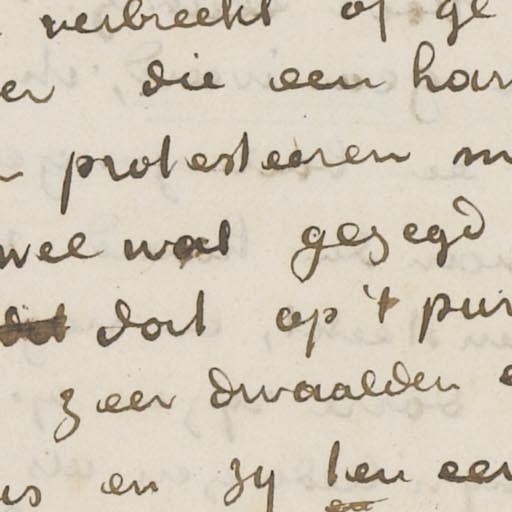 verbreekt of ge
er die een har
protesteeren m
wel wat gezegd
dat op 't pun
zeer dwaalden
us en zy ten eer